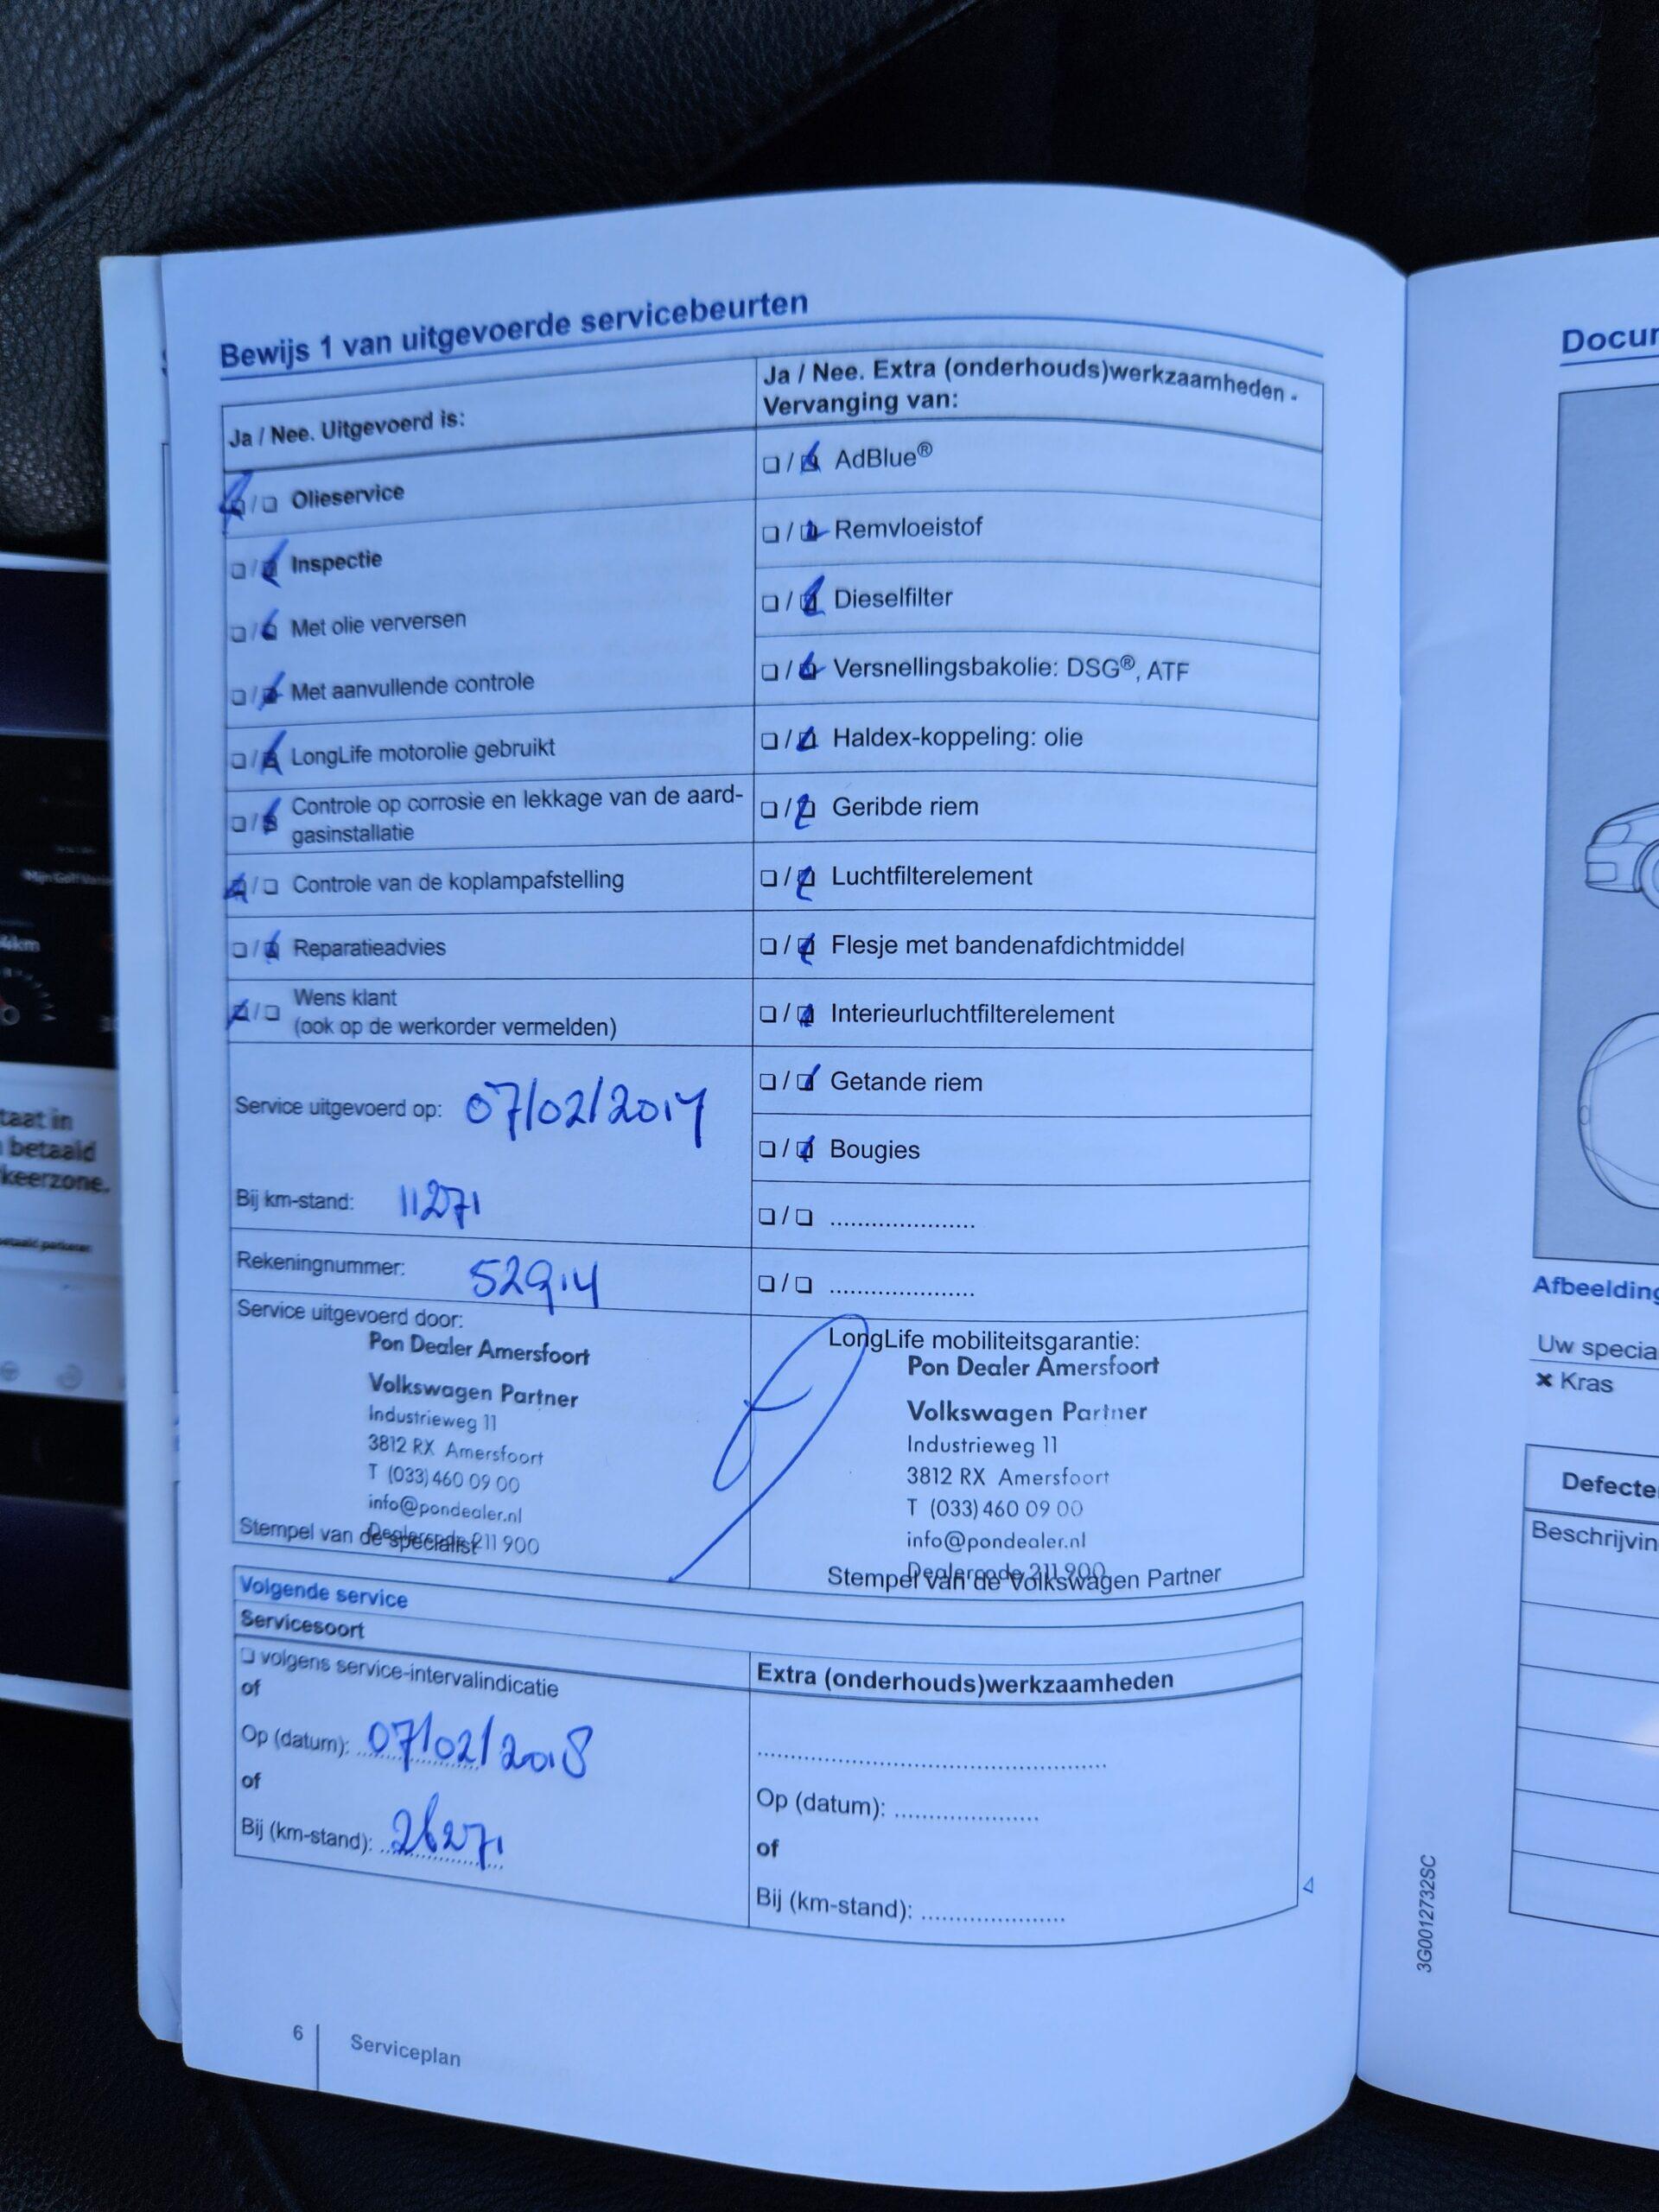 Bewijs 1 van uitgevoerde servicebeurten
Ja / Nee. Uitgevoerd is:
☑/☐ Olieservice
☐/☑ Inspectie
☐/☑ Met olie verversen
☐/☑ Met aanvullende controle
☐/☑ LongLife motorolie gebruikt
☐/☑ Controle op corrosie en lekkage van de aard-
gasinstallatie
☑/☐ Controle van de koplampafstelling
☐/☑ Reparatieadvies
☑/☐ Wens klant
(ook op de werkorder vermelden)
Service uitgevoerd op: 07/02/2017
Bij km-stand: 11271
Rekeningnummer: 52914
Service uitgevoerd door:
Pon Dealer Amersfoort
Volkswagen Partner
Industrieweg 11
3812 RX Amersfoort
T (033) 460 09 00
info@pondealer.nl
Dealercode 211 900
Stempel van de specialist
Ja / Nee. Extra (onderhouds)werkzaamheden -
Vervanging van:
☐/☑ AdBlue®
☐/☑ Remvloeistof
☐/☑ Dieselfilter
☐/☑ Versnellingsbakolie: DSG®, ATF
☐/☑ Haldex-koppeling: olie
☐/☑ Geribde riem
☐/☑ Luchtfilterelement
☐/☑ Flesje met bandenafdichtmiddel
☐/☑ Interieurluchtfilterelement
☐/☑ Getande riem
☐/☑ Bougies
☐/☐ .....................
☐/☐ .....................
LongLife mobiliteitsgarantie:
Pon Dealer Amersfoort
Volkswagen Partner
Industrieweg 11
3812 RX Amersfoort
T (033) 460 09 00
info@pondealer.nl
Dealercode 211 900
Stempel van de Volkswagen Partner
Volgende service
Servicesoort
☐ volgens service-intervalindicatie
of
Op (datum): 07/02/2018
of
Bij (km-stand): 26271
Extra (onderhouds)werkzaamheden
..................................................
Op (datum): .....................
of
Bij (km-stand): .....................
6
Serviceplan
3G0012732SC
Docum
Afbeelding
Uw specia
× Kras
Defecte
Beschrijvin
taat in
betaald
keerzone.